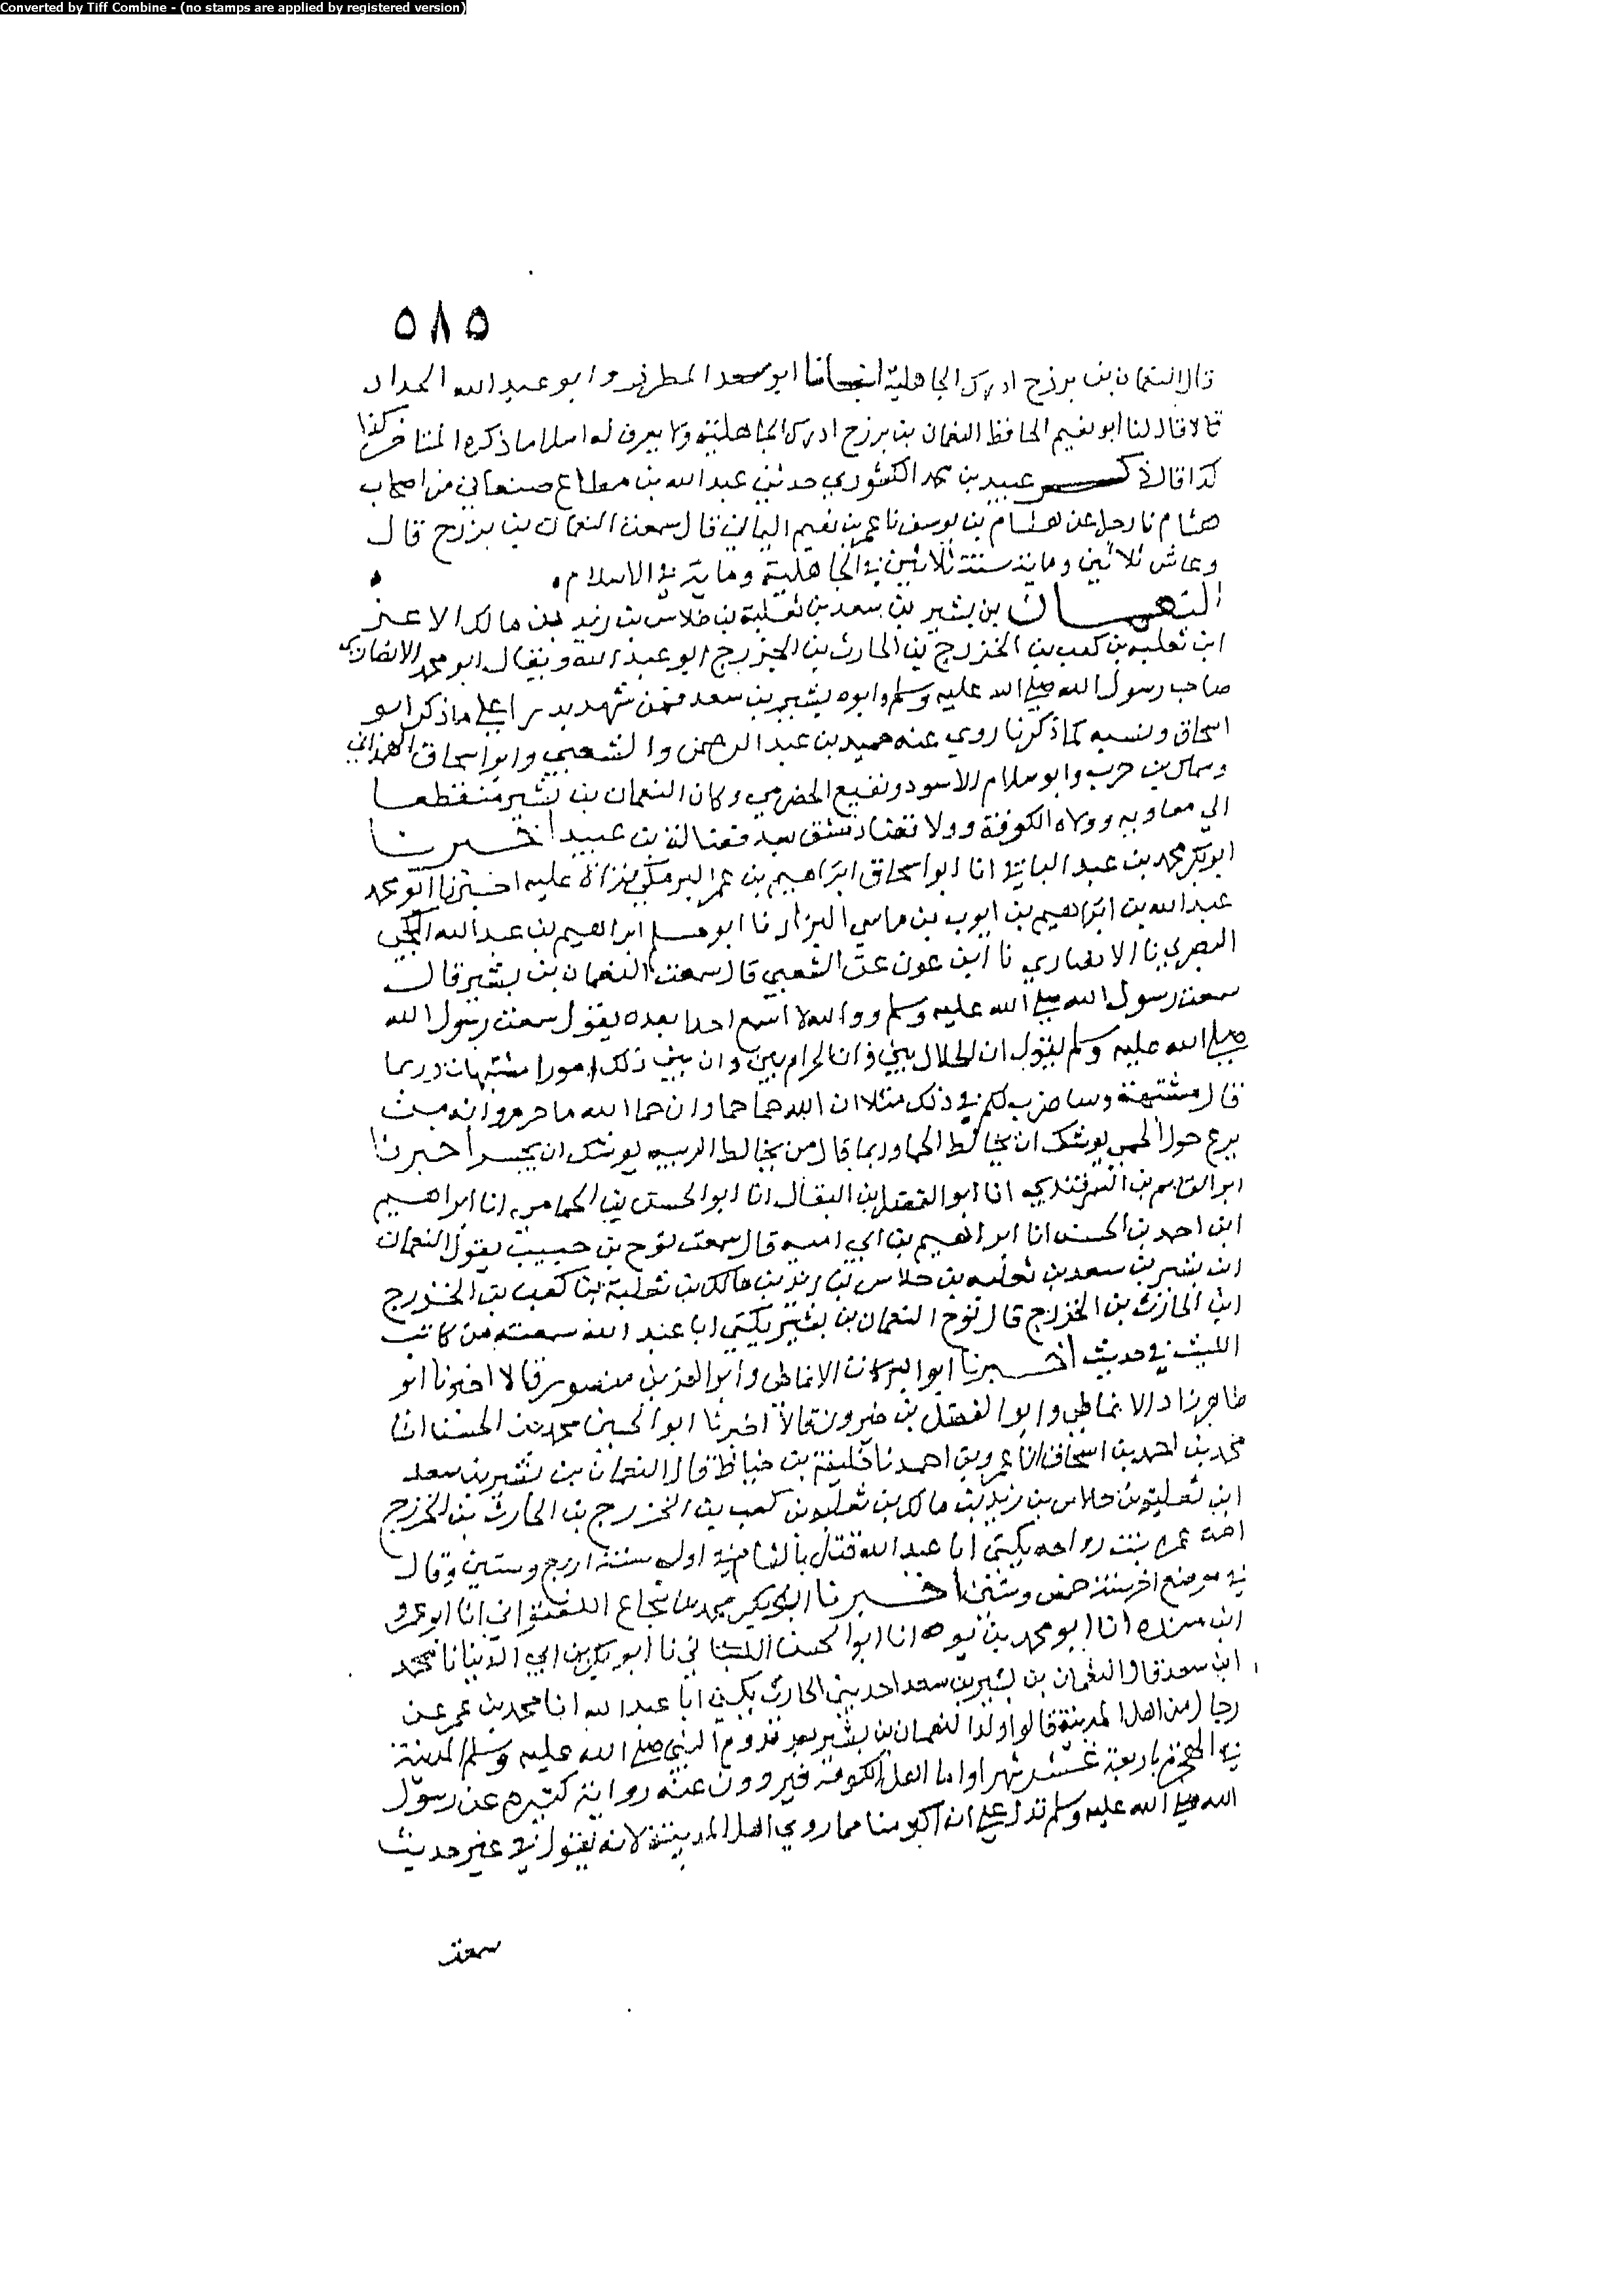 Converted by Tiff Combine - (no stamps are applied by registered version)
٥٨٥
قال النعمان بن برزح ادرك الجاهلية انبانا ابو سعد المطرز وابو عبد الله الحداد
قالا قال لنا ابو نعيم الحافظ النعمان بن برزح ادرك الجاهلية ولا يعرف له اسلاما ذكره المتاخر كذا
كذا قال ذكر عبيد بن محمد الكشوري حدثني عبد الله بن مطاع صنعاني من اصحاب
هشام نا رجل عن هشام بن يوسف نا عمر بن نعيم اليماني قال سمعت النعمان بن برزح قال
وعاش ثلاثين وماية سنة ثلاثين في الجاهلية وماية في الاسلام
النعمان بن بشير بن سعد بن ثعلبة بن خلاس بن زيد بن مالك الاعز
ابن ثعلبه بن كعب بن الخزرج بن الحارث بن الخزرج ابو عبد الله ويقال ابو محمد الانصاري
صاحب رسول الله صلي الله عليه وسلم وابوه بشير بن سعد فمن شهد بدرا علي ما ذكر ابو
اسحاق ونسبه كما ذكرنا روي عنه حميد بن عبد الرحمن والشعبي وابو اسحاق الهمداني
وسماك بن حرب وابو سلام الاسود ونفيع الحضرمي وكان النعمان بن بشير منقطعا
الي معاويه وولاه الكوفة وولا قضا دمشق بعد فضالة بن عبيد اخبرنا
ابو بكر محمد بن عبد الباقي انا ابو اسحاق ابراهيم بن عمر البرمكي قراة عليه اخبرنا ابو محمد
عبد الله بن ابراهيم بن ايوب بن ماسي البزار نا ابو مسلم ابراهيم بن عبد الله الكجي
البصري نا الانصاري نا ابن عون عن الشعبي قال سمعت النعمان بن بشير قال
سمعت رسول الله صلي الله عليه وسلم ووالله لا اسمع احدا بعده يقول سمعت رسول الله
صلي الله عليه وسلم يقول ان الحلال بين وان الحرام بين وان بين ذلك امورا مشتبهات وربما
قال مشتبهة وساضرب لكم في ذلك مثلا ان الله حما حما وان حما الله ما حرم وانه من
يرع حول الحمي يوشك ان يخالط الحما وربما قال من يخالط الريبه يوشك ان يجسر اخبرنا
ابو القاسم بن السمرقندي انا ابو الفضل بن البقال انا ابو الحسن بن الحمامي انا ابراهيم
ابن احمد بن الحسن انا ابراهيم بن ابي اميه قال سمعت نوح بن حبيب يقول النعمان
ابن بشير بن سعد بن ثعلبه بن خلاس بن زيد بن مالك بن ثعلبة بن كعب بن الخزرج
ابن الحارث بن الخزرج قال نوح النعمان بن بشير يكني ابا عبد الله سمعته من كاتب
الليث في حديث اخبرنا ابو البركات الانماطي وابو العز بن منصور قالا اخبرنا ابو
طاهر زاد الانماطي وابو الفضل بن خيرون قالا اخبرنا ابو الحسين محمد بن الحسن انا
محمد بن احمد بن اسحاق انا عمر بن احمد نا خليفة بن خياط قال النعمان بن بشير بن سعد
ابن ثعلبه بن خلاس بن زيد بن مالك بن ثعلبه بن كعب بن الخزرج بن الحارث بن الخزرج
امه عمرة بنت رواحه يكني ابا عبد الله قتل بالشام في اول سنة اربع وستين وقال
في موضع اخر سنة خمس وستين اخبرنا ابو بكر محمد بن شجاع اللفتواني انا ابو عمرو
ابن منده انا ابو محمد بن يوه انا ابو الحسن اللنباني نا ابو بكر بن ابي الدنيا نا محمد
ابن سعد قال النعمان بن بشير بن سعد احد بني الحارث يكني ابا عبد الله انا محمد بن عمر عن
رجال من اهل المدينة قالوا ولد النعمان بن بشير بعد قدوم النبي صلي الله عليه وسلم المدينة
في الهجرة باربعة عشر شهرا واما اهل الكوفة فيروون عنه رواية كثيره عن رسول
الله صلي الله عليه وسلم تدل علي انه اكبر سنا مما روي اهل المدينة لانه يقول في غير حديث
سمعت